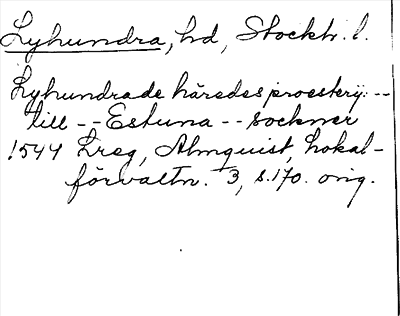 Lyhundra, hd, Stockh. l.
Lyhundrade häredes proesterij --
till -- Estuna -- sockner
1544 Lreg, Almquist, Lokal-
förvaltn. 3, s. 170. orig.